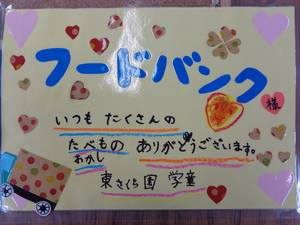 フードバンク
様
いつも たくさんの
たべもの ありがとうございます。
おかし
東さくら園 学童